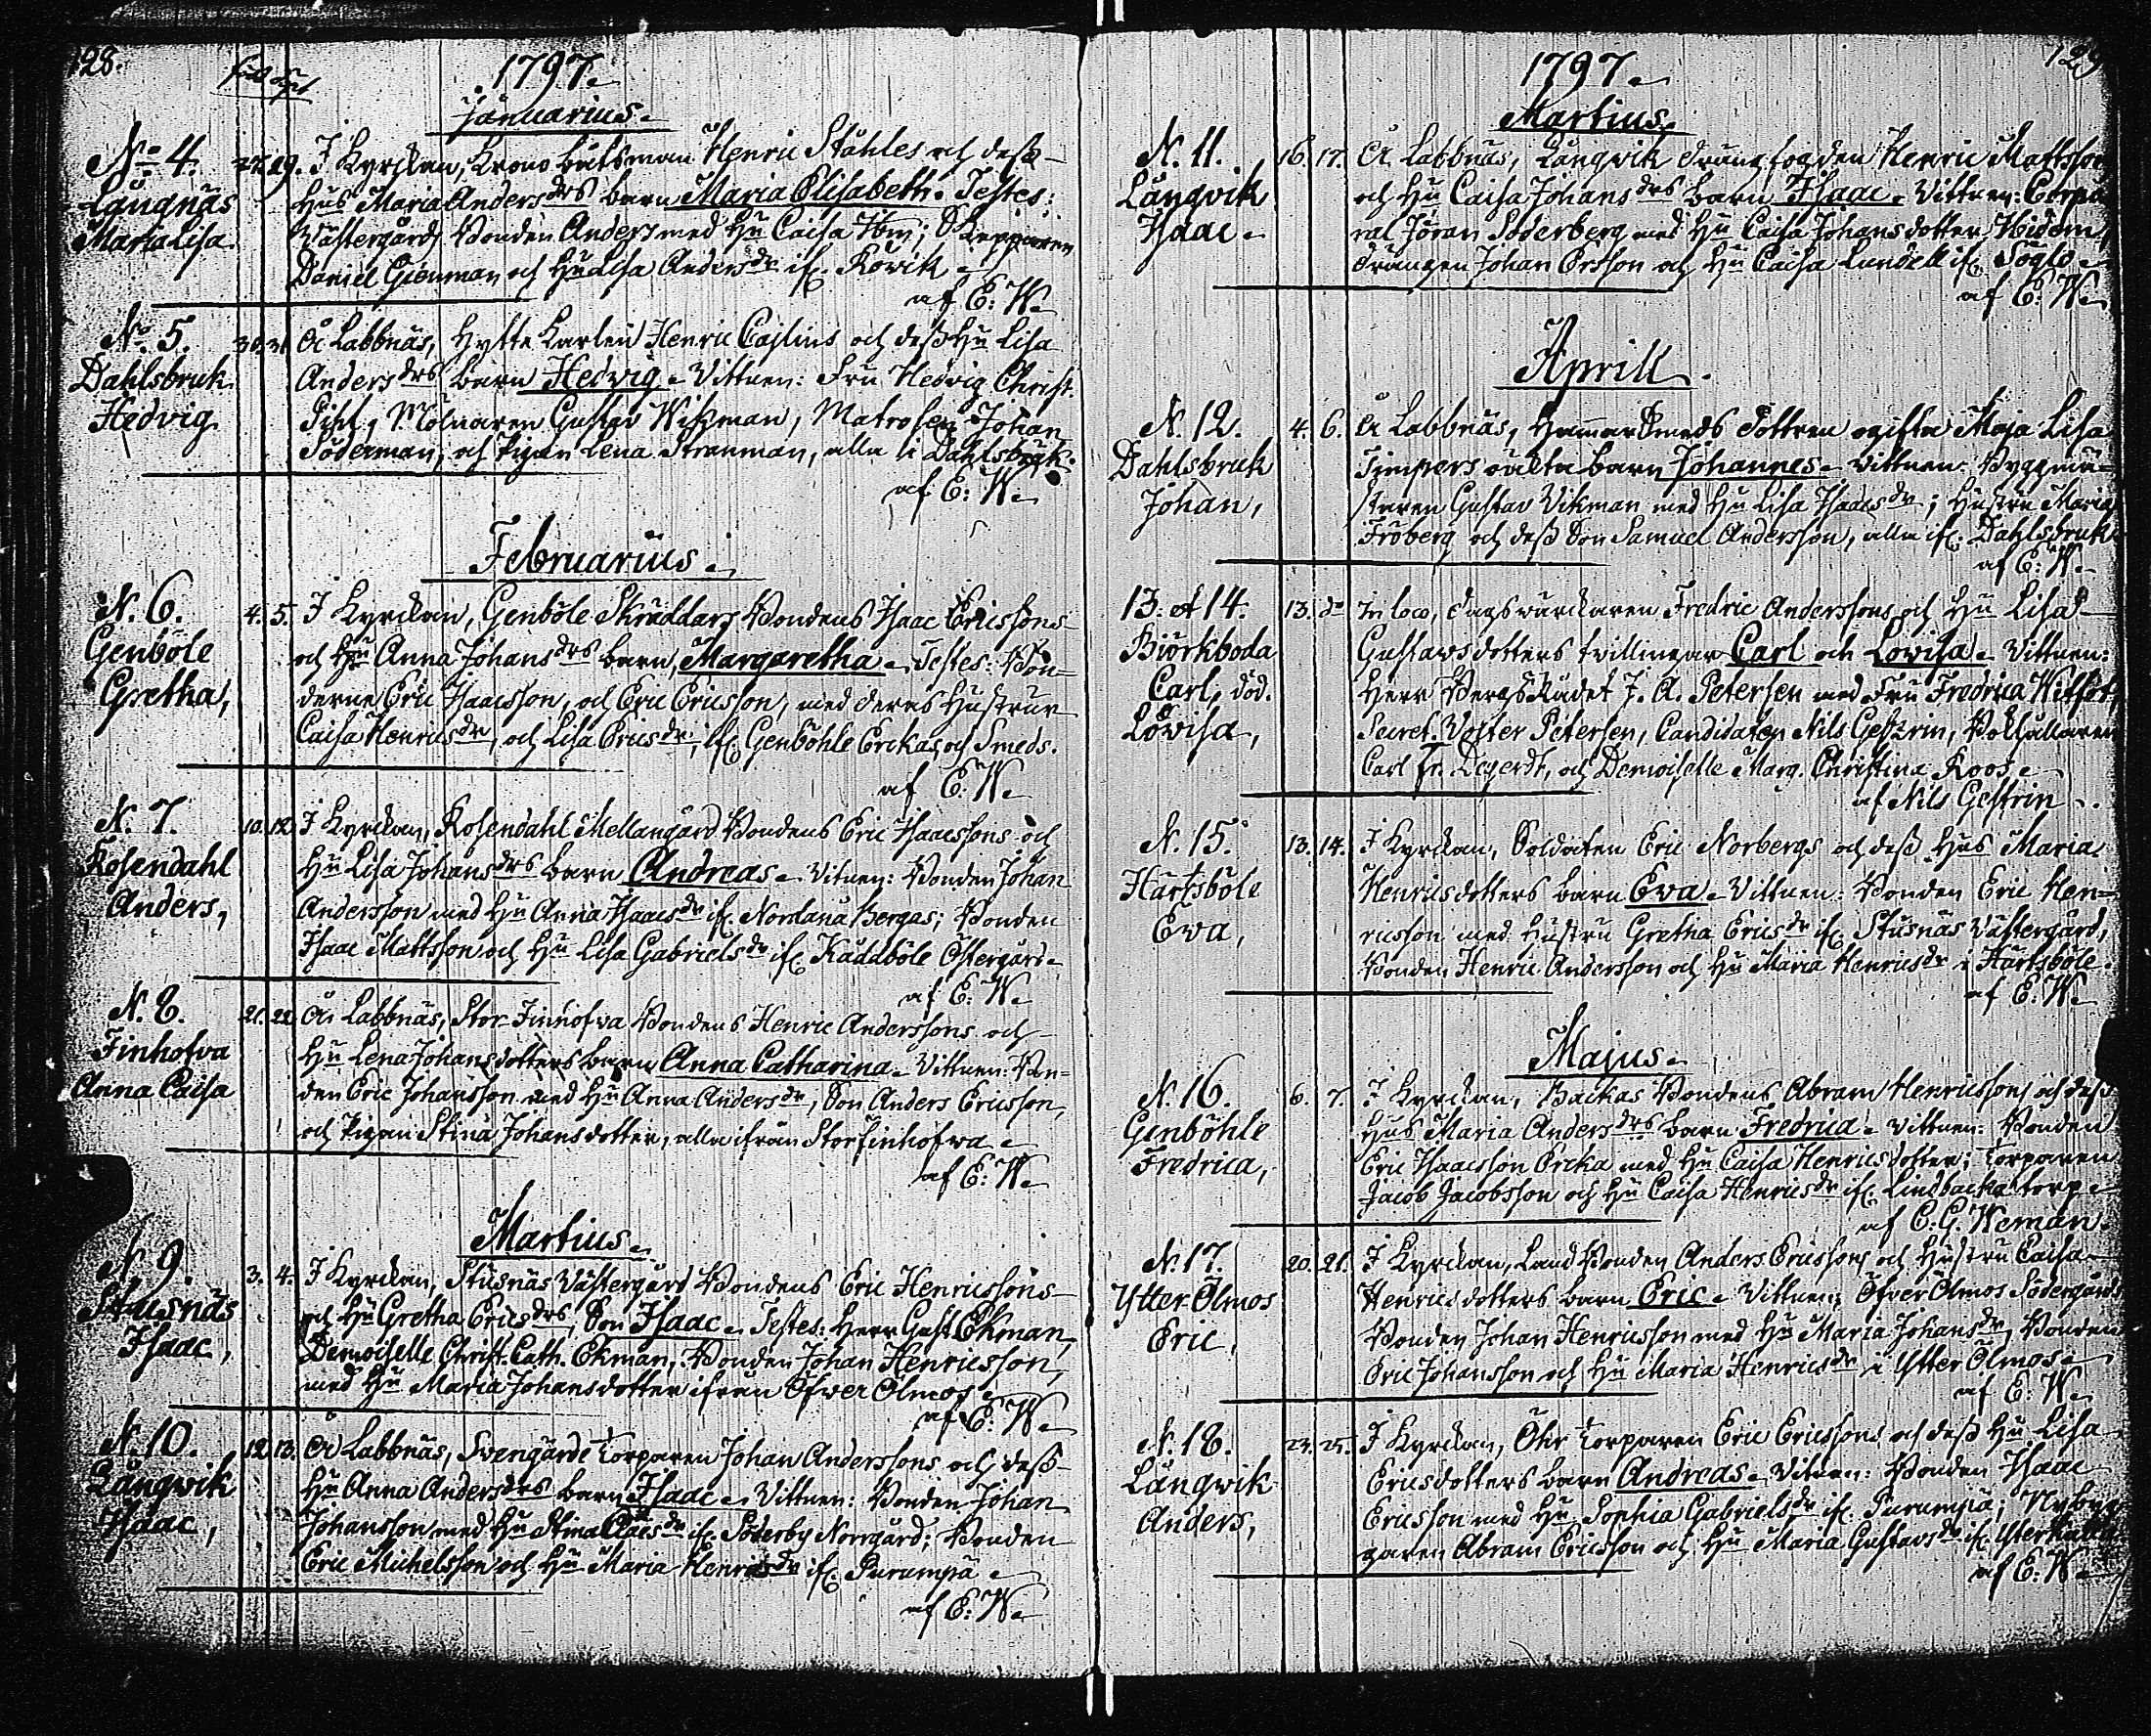 128.
1797.
Januarius.
No 4.
Långnäs
Maria Lisa
27. 29. I Kyrckan, Krono båtsman Henric Ståhles och dess
Hus Maria Andersdrs barn Maria Elisabeth. Testes:
Wästergårds Bonden Anders med Hu Caisa ; Skepparen
Daniel Gienman och Hu Lisa Andersdr if. Rövik
af E: W.
No 5.
Dahlsbruk
Hedvig
30. 31. Å Labbnäs, Hytte Karlen Henric Cajlins och dess Hu Lisa
Andersdrs barn Hedvig. Vittnen: Fru Hedvig Christ.
Pihl, Mölnaren Gustav Wikman, Matrosen Johan
Söderman, och Pigan Lena Stranman, alla i Dahlsbruk.
af E: W.
Februarius.
N. 6.
Genböle
Gretha,
4. 5. I Kyrckan, Genböle Skräddars Bondens Isaac Ericssons
och Hu Anna Johansdrs barn, Margaretha. Testes: Bön=
derne Eric Isaacsson, och Eric Ericsson, med deras Hustrur
Caisa Henricsdr, och Lisa Ericsdr, if. Genböhle Erckas och Smeds.
af E: W.
N. 7.
Rosendahl
Anders,
10. 12. I Kyrckan, Rosendahl Mellangård Bondens Eric Isaacssons och
Hu Lisa Johansdrs barn Andreas. Vitnen: Bonden Johan
Andersson med Hu Anna Isaacsdr if. Nordanå Bergas; Bonden
Isaac Mattsson och Hu Lisa Gabrielsdr if. Kåddböle Östergård.
af E: W.
N. 8.
Finhofva
Anna Caisa
21. 22. Å Labbnäs, Stor-Finnofva Bondens Henric Anderssons och
Hu Lena Johansdotters barn Anna Catharina. Vittnen: Bon=
den Eric Johansson med Hu Anna Andersdr, Son Anders Ericsson,
och Pigan Stina Johansdotter, alla ifrån Storfinhofwa.
af E: W.
Martius.
N 9.
Stusnäs
Isaac,
3. 4. I Kyrckan, Stusnäs Västergård Bondens Eric Henricssons
och Hu Gretha Ericsdrs, Son Isaac. Testes: Herr Gust. Ekman,
Demoiselle Christ. Cath. Ekman, Bonden Johan Henricsson,
med Hu Maria Johansdotter ifrån Öfwer Ölmos.
af E: W.
N. 10.
Långwik
Isaac,
12. 13. Å Labbnäs, Svengärde Torparen Johan Anderssons och dess
Hu Anna Andersdrs barn Isaac. Vittnen: Bonden Johan
Johansson med Hu Stina Claesdr if. Söderby Norrgård; Bonden
Eric Michelsson och Hu Maria Henricsdr if. Purumpä.
af E: W.
129
1797.
Martius.
N. 11.
Långvik
Isaac.
16. 17. Å Labbnäs, Långvik drängfogden Henric Mattsson
och Hu Caisa Johansdrs barn Isaac. Vittnen: Corpo
ral Jöran Söderberg med Hu Caisa Johansdotter
drängen Johan Orsson och Hu Caisa Lundell if. Söglö.
af E: W.
Aprill.
N. 12.
Dahlsbruk
Johan,
4. 6. Å Labbnäs, Hammarsmeds dottren ogifta Maja Lisa
Timpers oäkta barn Johannes. Vittnen: Byggmä=
staren Gustav Vikman med Hu Lisa Isaacsdr; Hustru Maria
Fröberg och dess Son Samuel Andersson, alla if. Dahlsbruk.
af E: W.
13. et 14.
Biörkboda
Carl, död.
Lovisa,
13. do In loco, dagswärckaren Fredric Anderssons och Hu Lisa
Gustawsdotters tvillingar Carl och Lovisa. Vittnen:
Herr BergsRådet J. A. Petersen med Fru Fredrica Witfot,
Secret. Volter Petersen, Candidaten Nils Gestrin, Bokhållaren
Carl Fr. Degerdt, och Demoiselle Marg. Christina Roos.
af Nils Gestrin.
N. 15.
Hartsböle
Eva,
13. 14. I Kyrckan, Soldaten Eric Norbergs och dess Hus Maria
Henricsdotters barn Eva. Vittnen: Bonden Eric Hen=
ricsson med Hustru Gretha Ericsdr if. Stusnäs Västergård,
Bonden Henric Andersson och Hu Maria Henricsdr i Hartsböle.
af E: W.
Majus.
N. 16.
Genböhle
Fredrica,
6. 7. I Kyrckan, Backas Bondens Abram Henricssons och dess
Hus Maria Andersdrs barn Fredrica. Vittnen: Bonden
Eric Isaacsson Ercka med Hu Caisa Henricsdotter; Torparen
Jacob Jacobsson och Hu Caisa Henricsdr if. Lindbacka torp.
af E. G. Weman.
N. 17.
Ytter-Ölmos
Eric,
20. 21. I Kyrckan, LandBonden Anders Ericssons och Hustru Caisa
Henricsdotters barn Eric. Vittnen: Öfver Ölmos Södergårds
Bonden Johan Henricsson med Hu Maria Johansdr, Bonden
Eric Johansson och Hu Maria Henricsdr i Ytter Ölmos.
af E: W.
N. 18.
Långwik
Anders,
24. 25. I Kyrckan, Öhr Torparen Eric Ericssons och dess Hu Lisa
Ericsdotters barn Andreas. Vitnen: Bonden Isaac
Ericsson med Hu Sophia Gabrielsdr if. Purumpä; Nybyg
garen Abram Ericsson och Hu Maria Gustavsdr if.
af E: W.